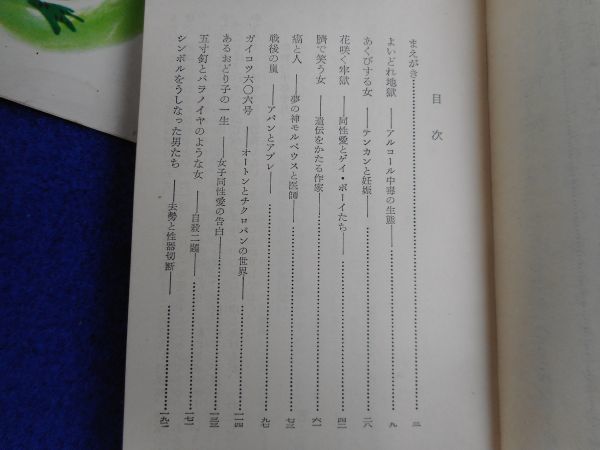 目次
まえがき……三
よいどれ地獄――アルコール中毒の生態――……九
あくびする女――テンカンと妊娠――……二六
花咲く牢獄――同性愛とゲイ・ボーイたち――……四二
臍で笑う女――遺伝をかたる作家――……六一
癌と人――夢の神モルペウスと医師――……七三
戦後の嵐――アパンとアプレ――……九七
ガイコツ六〇六号――オートンとチクロパンの世界――……一一四
あるおどり子の一生――女子同性愛の告白――……一三三
五寸釘とパラノイヤのような女――自殺二題――……一七一
シンボルをうしなった男たち――去勢と性器切断――……一九一